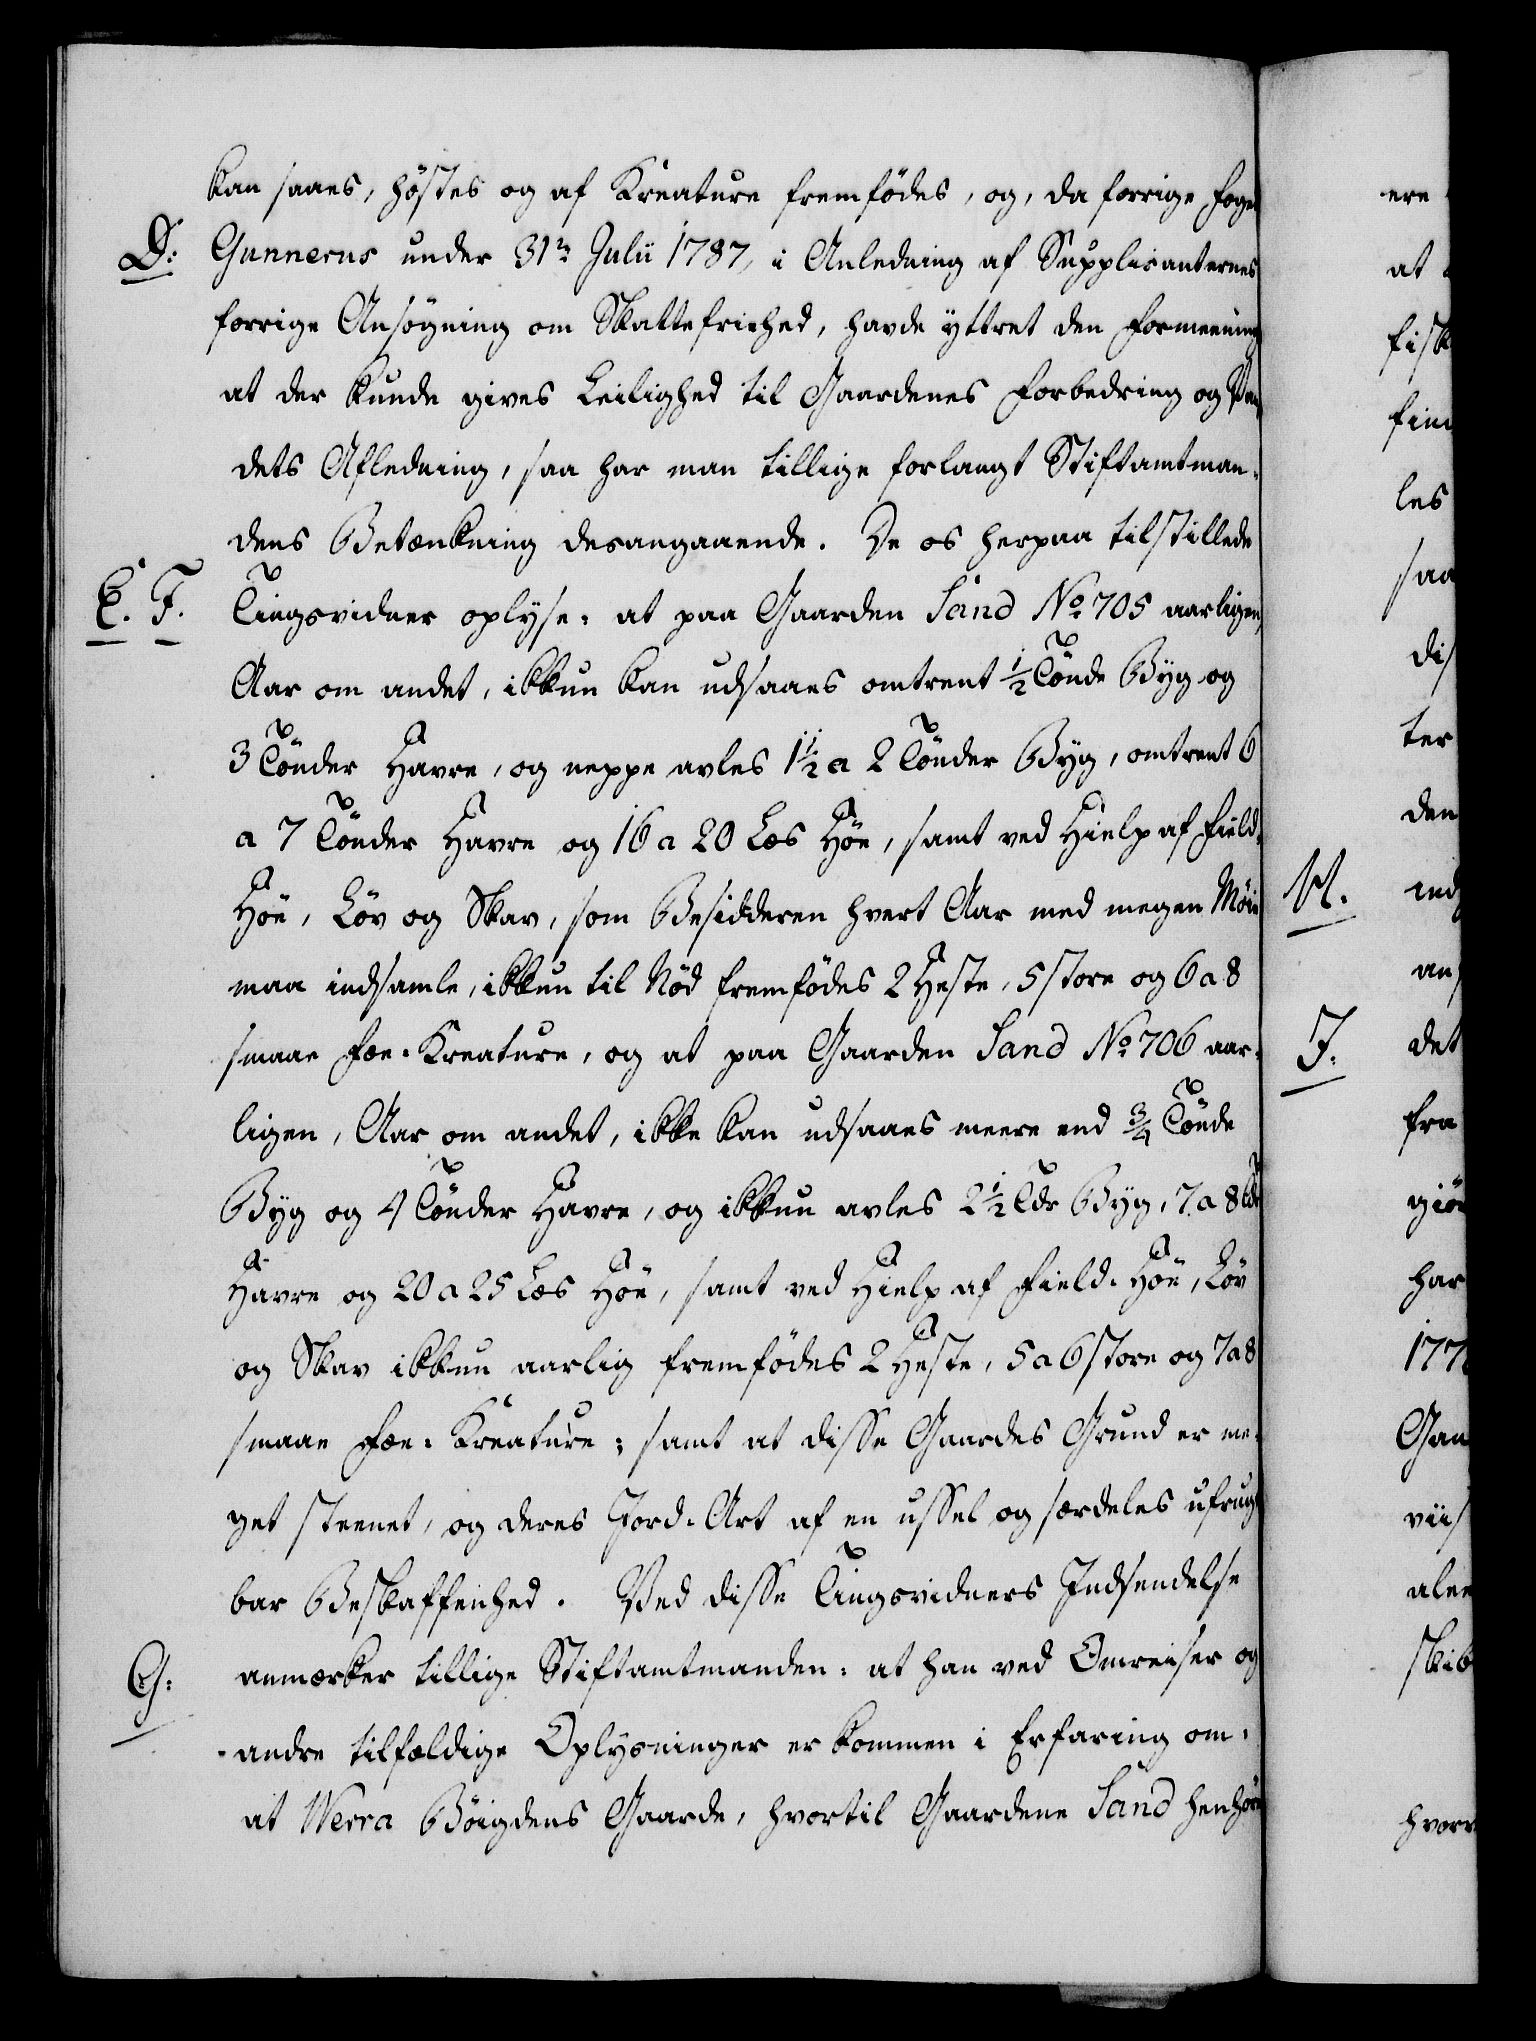 kan saaes, höstes og af Kreature fremfödes, og, da forrige Foged
D: Gunnerus under 31te Julii 1787, i Anledning af Supplicanternes
forrige Ansögning om Skattefriehed, havde yttret den Formeening
at der kunde gives Leilighed til Gaardenes Forbedring og Van
dets Afledning, saa har man tillige forlangt Stiftamtman-
dens Betænkning desangaaende. De os herpaa tilstillede
E. F. Tingsvidner oplyse: at paa Gaarden Sand No 705 aarligen,
Aar om andet, ikkun kan udsaaes omtrent ½ Tönde Byg og
3 Tönder Havre, og neppe avles 1½ a 2 Tönder Byg, omtrent 6
a 7 Tönder Havre og 16 a 20 Læs Höe, samt ved Hielp af Field-
Höe, Löv og Skav, som Besidderen hvert Aar med megen Möie
maa indsamle, ikkun til Nöd fremfödes 2 Heste, 5 store og 6 a 8
smaae Fæe-Kreature, og at paa Gaarden Sand No 706 aar-
ligen, Aar om andet, ikke kan udsaaes meere end ¾ Tönde
Byg og 4 Tönder Havre, og ikkun avles 2½ Tdr Byg, 7 a 8 Tdr
Havre og 20 a 25 Læs Höe, samt ved Hielp af Field-Höe, Löv
og Skav ikkun aarlig fremfödes 2 Heste, 5 a 6 store og 7 a 8
smaae Fæe-Kreature; samt at disse Gaardes Grund er me-
get steenet, og deres Jord-Art af en ussel og særdeles ufrugt
bar Beskaffenhed. Ved disse Tingsvidners Indsendelse
G: anmærker tillige Stiftamtmanden: at han ved Omreiser og
andre tilfældige Oplysninger er kommen i Erfaring om:
at Werra Böigdens Gaarde, hvortil Gaardene Sand henhöre
ere
at
fisk
find
les
saa
dis
ter
den
H. ind
an
I. det
fra
giör
har
177
Gan
viis
alee
skib
hvor